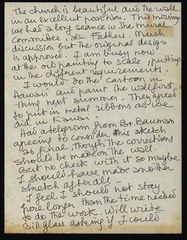 The church is beautiful and the wall
in an excellent position. This morning
we had a long seance w. the mural
committee & the Father. Much
discussion but the original design
is approved. I am busy now
at the old painting to scale & putting
in the different requirements.
I would do the cartoon in
Hawaii and paint the wall first
thing next summer. They agreed
to put in metal ribbons as we
did in Kansas.
Had a telegram from Bot. Bauman
agreeing to consider this sketch
as final, though the corrections
should be made on the wall.
But no check with it so maybe
I should have made another
sketch after all!
I feel I should not stay
here longer than the time needed
to do the work. Will write
Bill Glass asking if I could